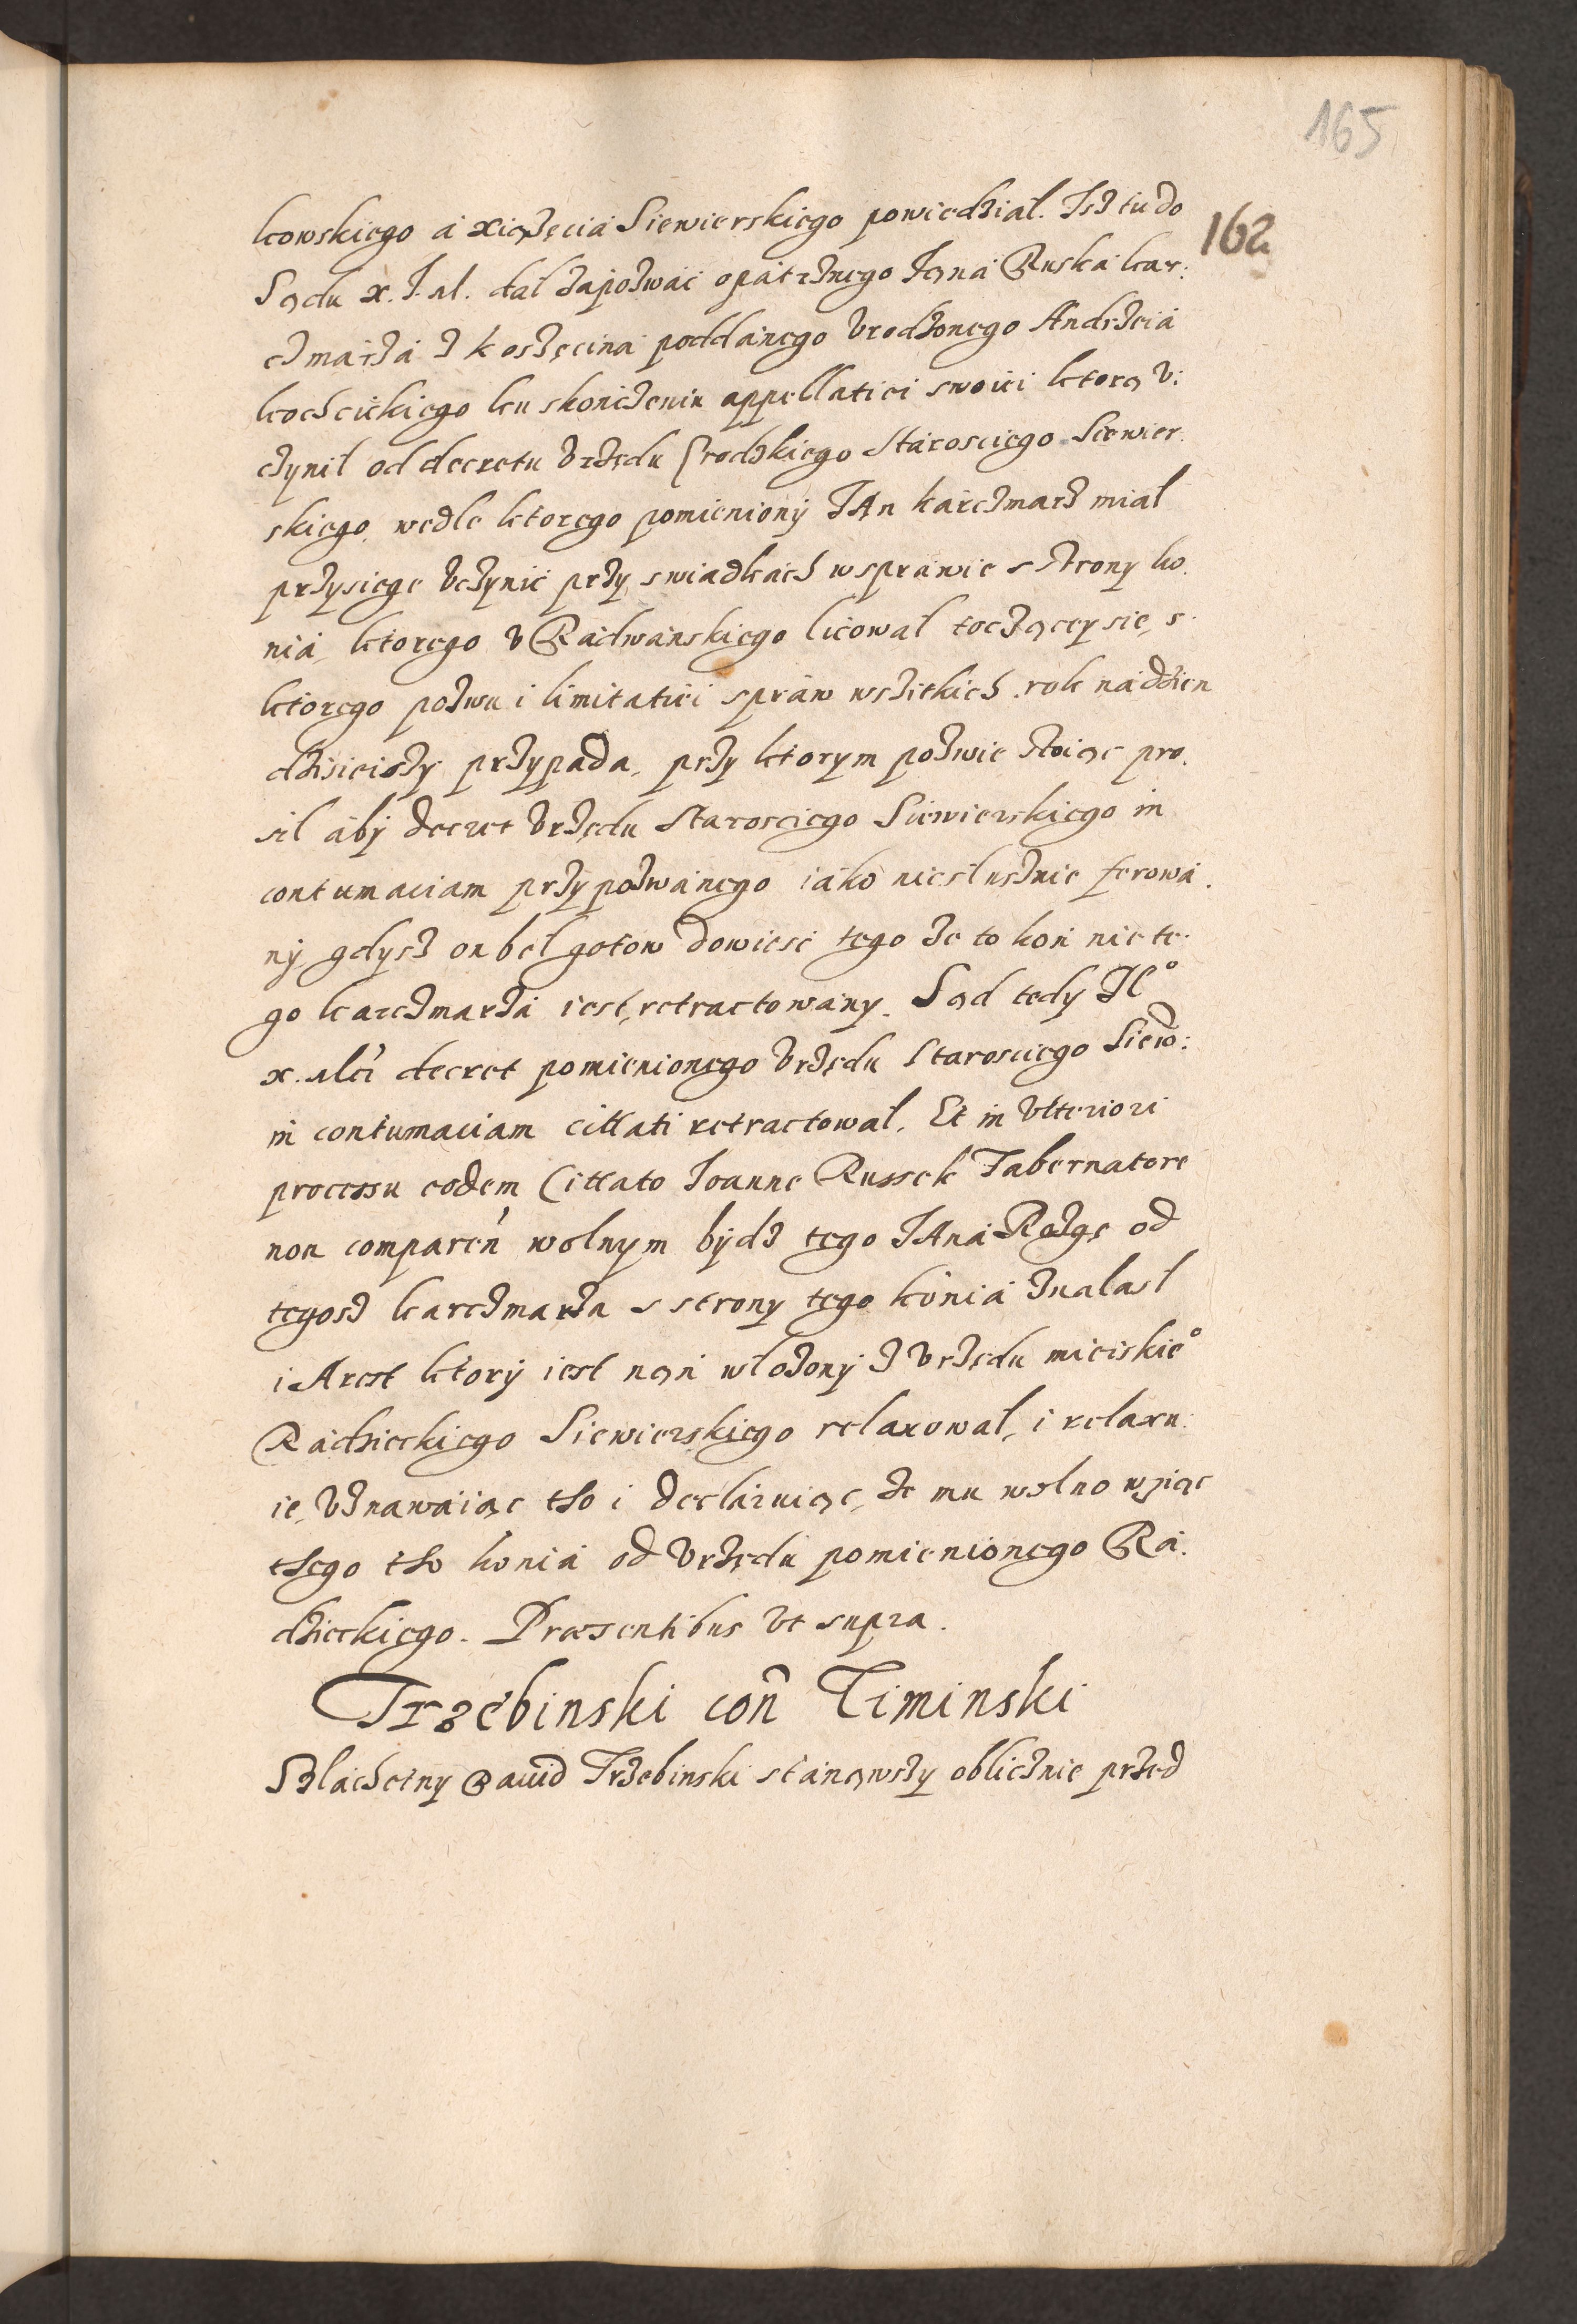 165
162
kowskiego á xiążęciá Siewierskiego powiedział. Isz tu do
Sądu x. J. M. dał zapozwać opátrznego Janá Ruská kar:
czmarzá z Koszęciná poddánego Vrodzonego Andrzeiá
Kochcickiego ku skończeniu appellatiei swoiei ktorą v:
czynił od decretu Vrzędu Grodzkiego Stárosciego Siewier.
skiego, wedle ktorego pomieniony JAn karczmarz miał
przysiege vczynić przy swiadkách w sprawie s strony ko.
niá, ktorego v Rádwánskiego licował toczącey sie, s
ktorego pozwu i limitatiei spraw wszitkich rok ná dzien
dzisieiszy przypada, przy ktorym pozwie stoiąc pro.
sił áby decret Vrzędu Starosciego Siewierskiego in
contumaciam przypozwánego iáko niesłusznie ferowá.
ny gdysz on beł gotow dowiesć tego że to koń nie te.
go karczmarzá iest, retractowány. Sąd tedy Je°
x. Mći decret pomienionego Vrzędu Starosciego Siew:
in contumaciam cittati retractował. Et in vlteriori
processu eodem Cittato Joanne Russek Tabernatore
non comparen wolnym bydz tego JAná Rozgę od
tegosz karczmarza s strony tego konia znalasł
i Arest ktory iest nań włożony z Vrzędu mieiskie°
Rádzieckiego Siewierskiego relaxował, i relaxu:
ie, Vznawaiąc tho i declaruiąc, że mu wolno wziąc
thego tho koniá od Vrzędu pomienionego Rá.
dzieckiego. Præsentibus vt supra.
Trzebinski con Ciminski
Szláchetny Dawid Trzebinski stánąwszy oblicznie przed